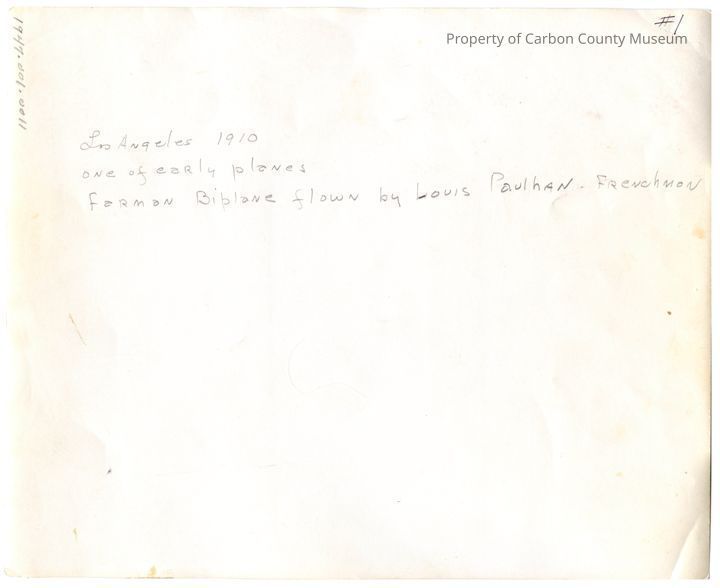 #1
Property of Carbon County Museum
1947.001.0011
Los Angeles 1910
one of early planes
Farman Biplane flown by Louis Paulhan - Frenchman